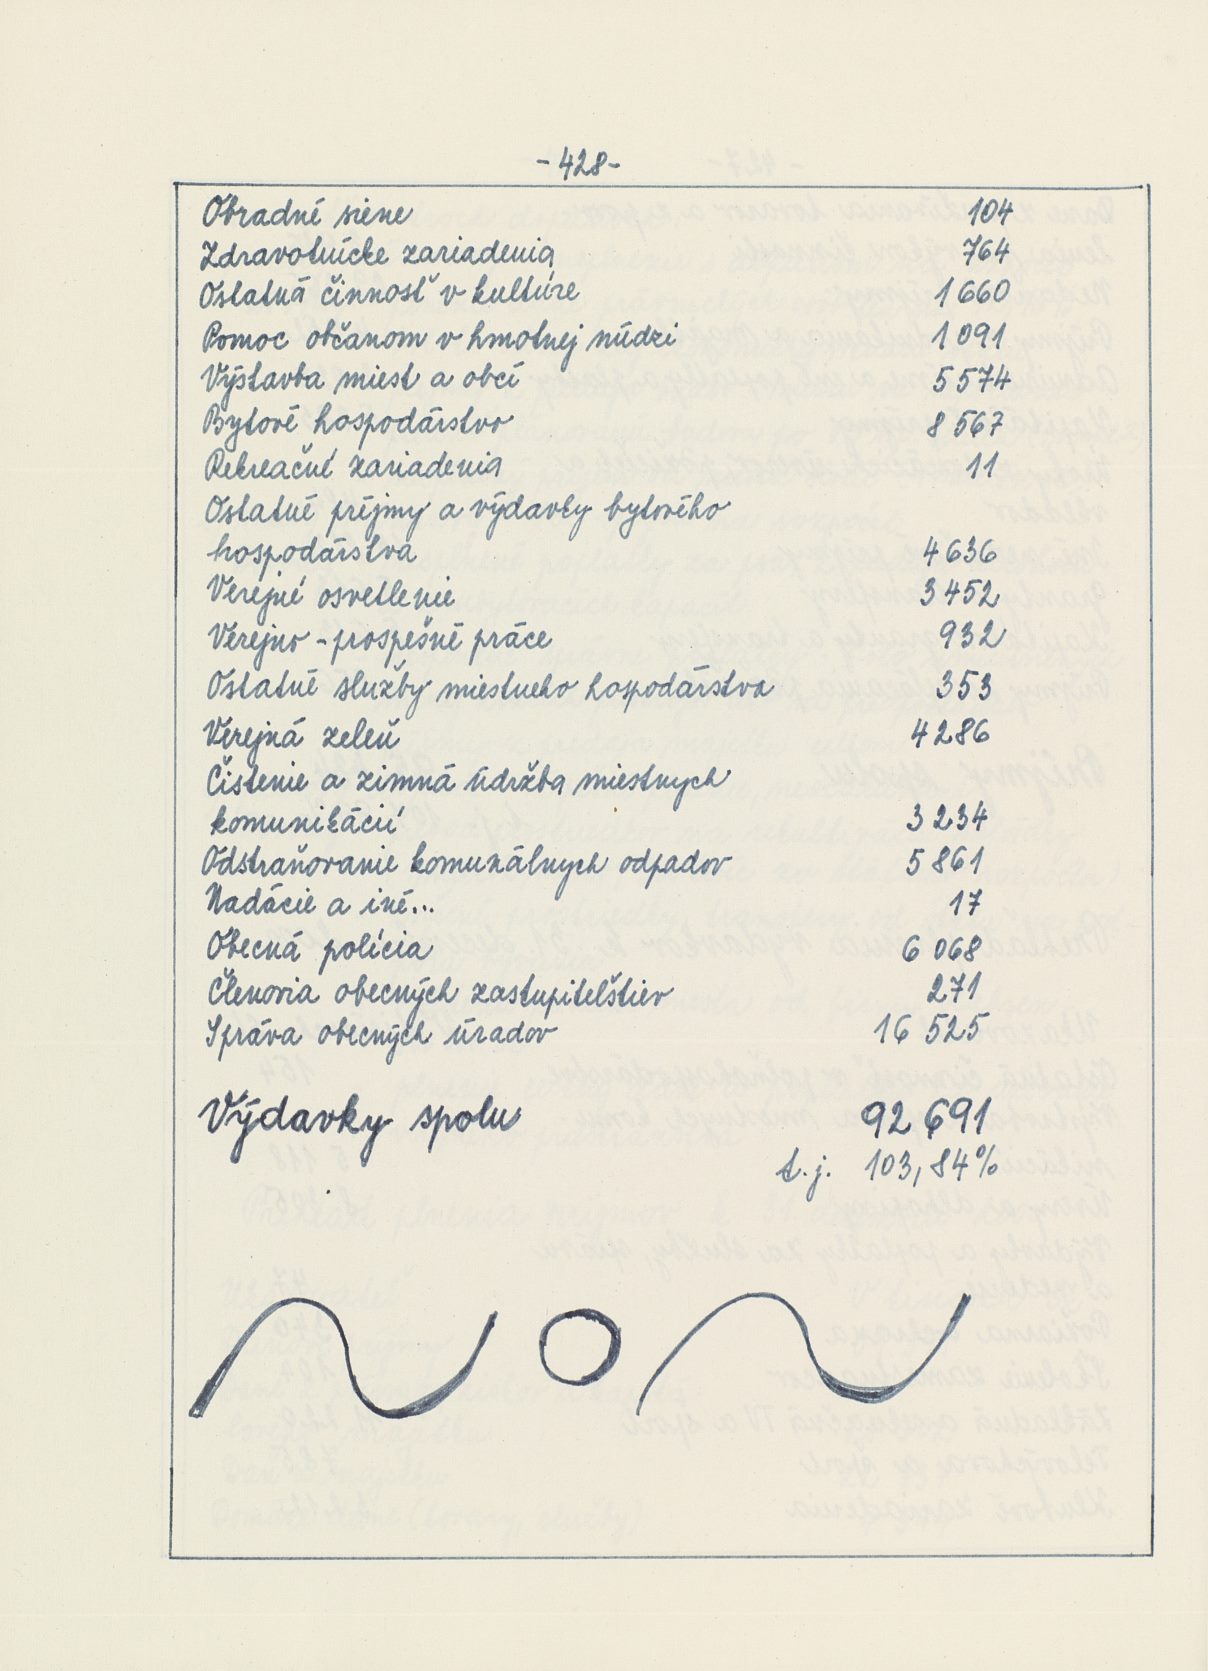 -428-
Obradné siene 104
Zdravotnícke zariadenia 764
Ostatná činnosť v kultúre 1 660
Pomoc občanom v hmotnej núdzi 1 091
Výstavba miest a obcí 5 574
Bytové hospodárstvo 8 567
Rekreačné zariadenia 11
Ostatné príjmy a výdavky bytového
hospodárstva 4 636
Verejné osvetlenie 3 452
Verejno-prospešné práce 932
Ostatné služby miestneho hospodárstva 353
Verejná zeleň 4 286
Čistenie a zimná údržba miestnych
komunikácií 3 234
Odstraňovanie komunálnych odpadov 5 861
Nadácie a iné... 17
Obecná polícia 6 068
Členovia obecných zastupiteľstiev 271
Správa obecných úradov 16 525
Výdavky spolu 92 691
t.j. 103,84%